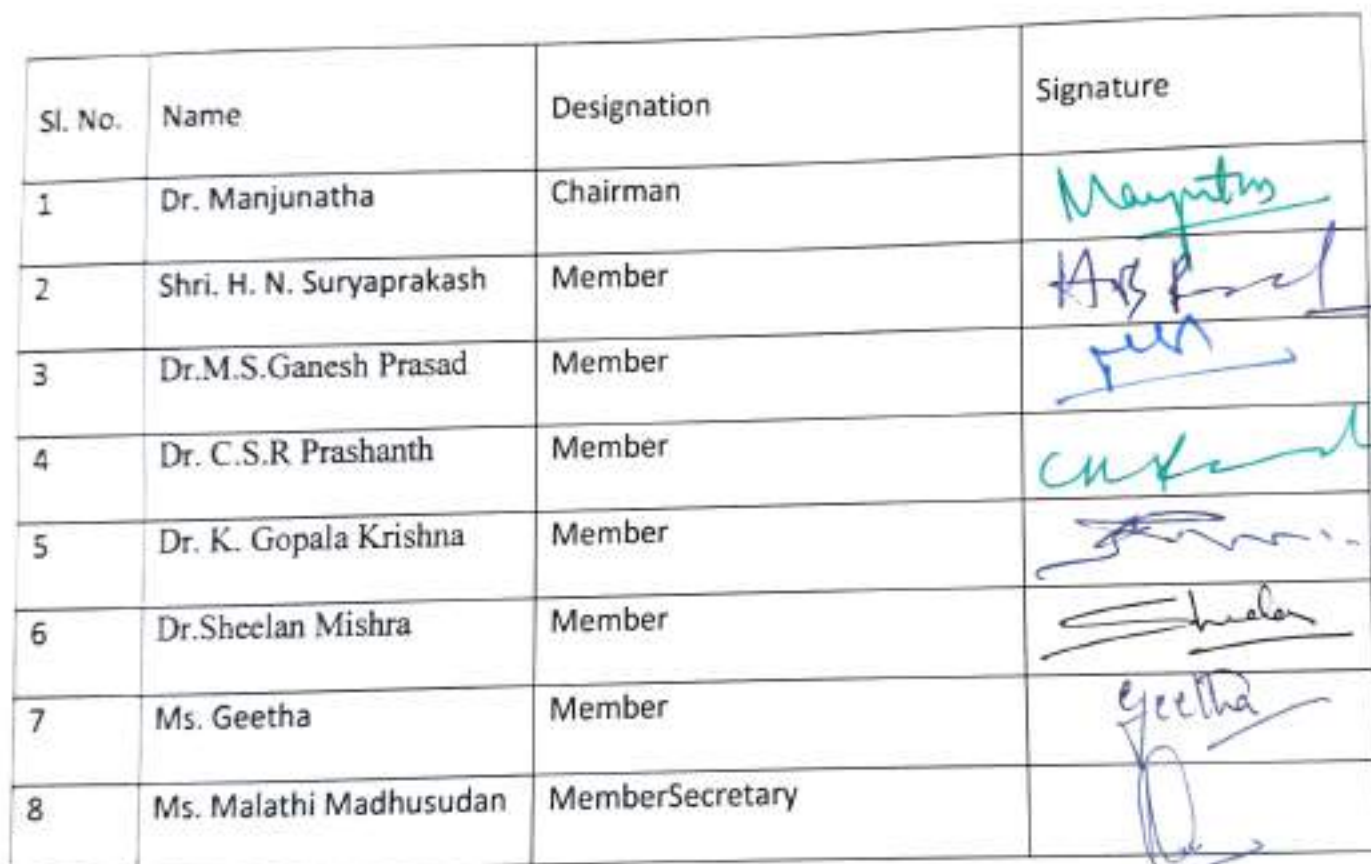 Sl. No. Name Designation Signature
1 Dr. Manjunatha Chairman
2 Shri. H. N. Suryaprakash Member
3 Dr.M.S.Ganesh Prasad Member
4 Dr. C.S.R Prashanth Member
5 Dr. K. Gopala Krishna Member
6 Dr.Sheelan Mishra Member Sheelan
7 Ms. Geetha Member Geetha
8 Ms. Malathi Madhusudan MemberSecretary